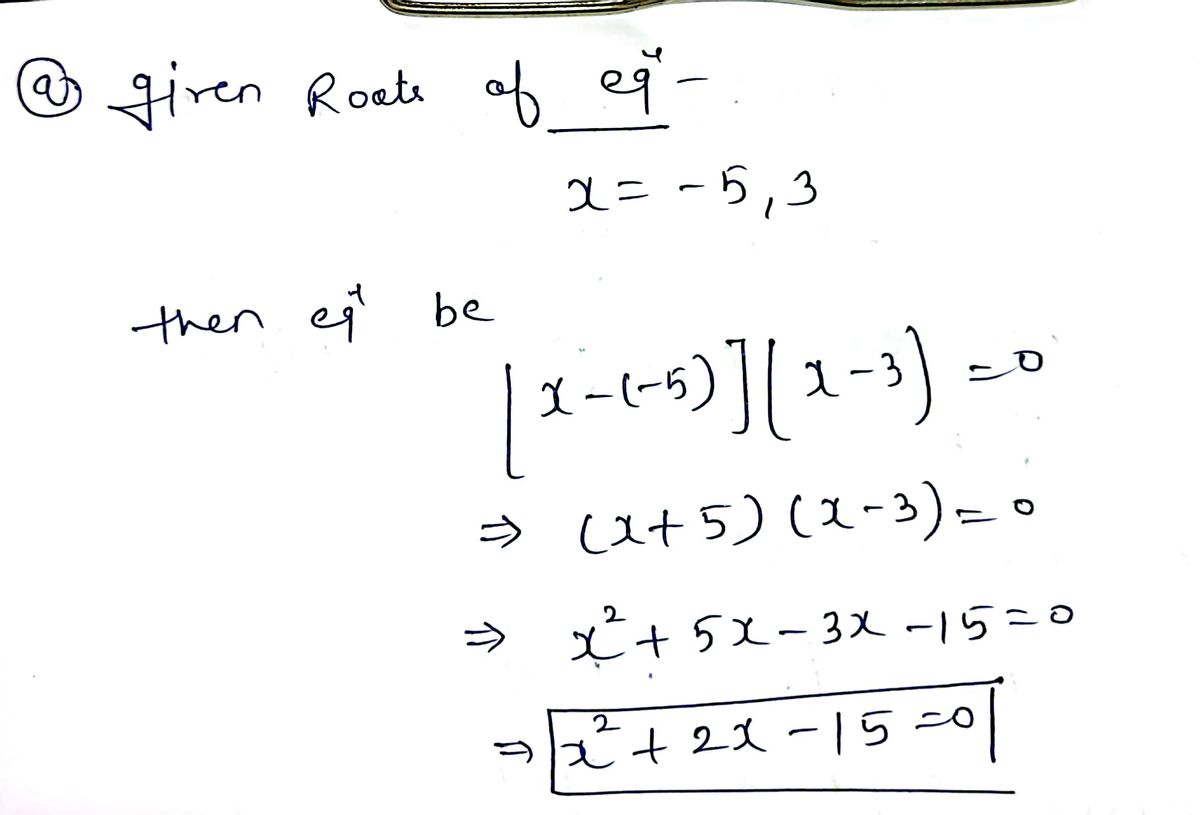 (a) given Roots of eqⁿ -
x = -5, 3
then eqⁿ be
[x-(-5)](x-3) =0
⇒ (x+5) (x-3)= 0
⇒ x²+ 5x-3x -15=0
⇒ x²+ 2x -15 =0